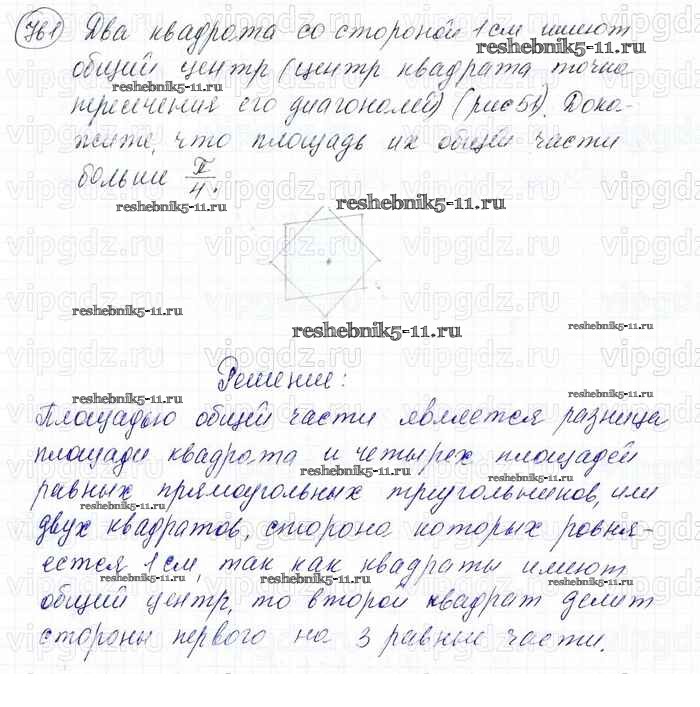 761 Два квадрата со стороной 1 см имеют
resheben5-11.ru
общий центр (центр квадрата точка
reshebnik5-11.ru
пересечения его диагоналей) (рис 51). Дока-
жите, что площадь их общей части
больше π/4.
reshebnik5-11.ru
reshebnik5-11.ru
reshebnik5-11.ru
reshebnik5-11.ru
reshebnik5-11.ru
Решение:
reshebnik5-11.ru
reshebnik5-11.ru
Площадью общей части является разница
площади квадрата и четырех площадей
reshebnik5-11.ru
равных прямоугольных треугольников, или
reshebnik5-11.ru
двух квадратов, сторона которых ровня-
ется 1 см, так как квадраты имеют
reshebnik5-11.ru
reshebnik5-11.ru
reshebnik5-11.ru
общий центр, то второй квадрат делит
стороны первого на 3 равные части.
vipgdz.ru